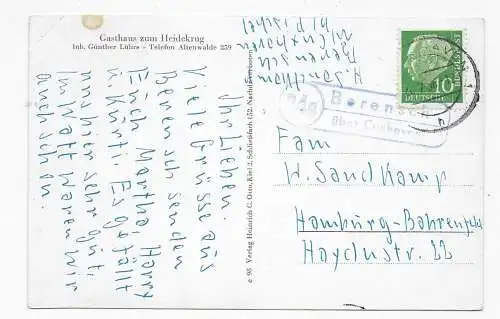 Gasthaus zum Heidekrug
Inh. Günther Lührs - Telefon Altenwalde 259
Ihr Lieben.
Viele Grüsse aus
Berensch senden
Erich, Martha, Harry
u. Kurti. Es gefällt
uns hier sehr gut.
Im Watt waren wir
auch schon.
e 98 Verlag Heinrich C. Osten, Kiel 2, Schließfach 152. Nachdruck verboten
24a
Berensch
über Cuxhaven
10
DEUTSCHE BUNDESPOST
Fam
W. Sandkamp
Hamburg-Bahrenfeld
Haydnstr. 22